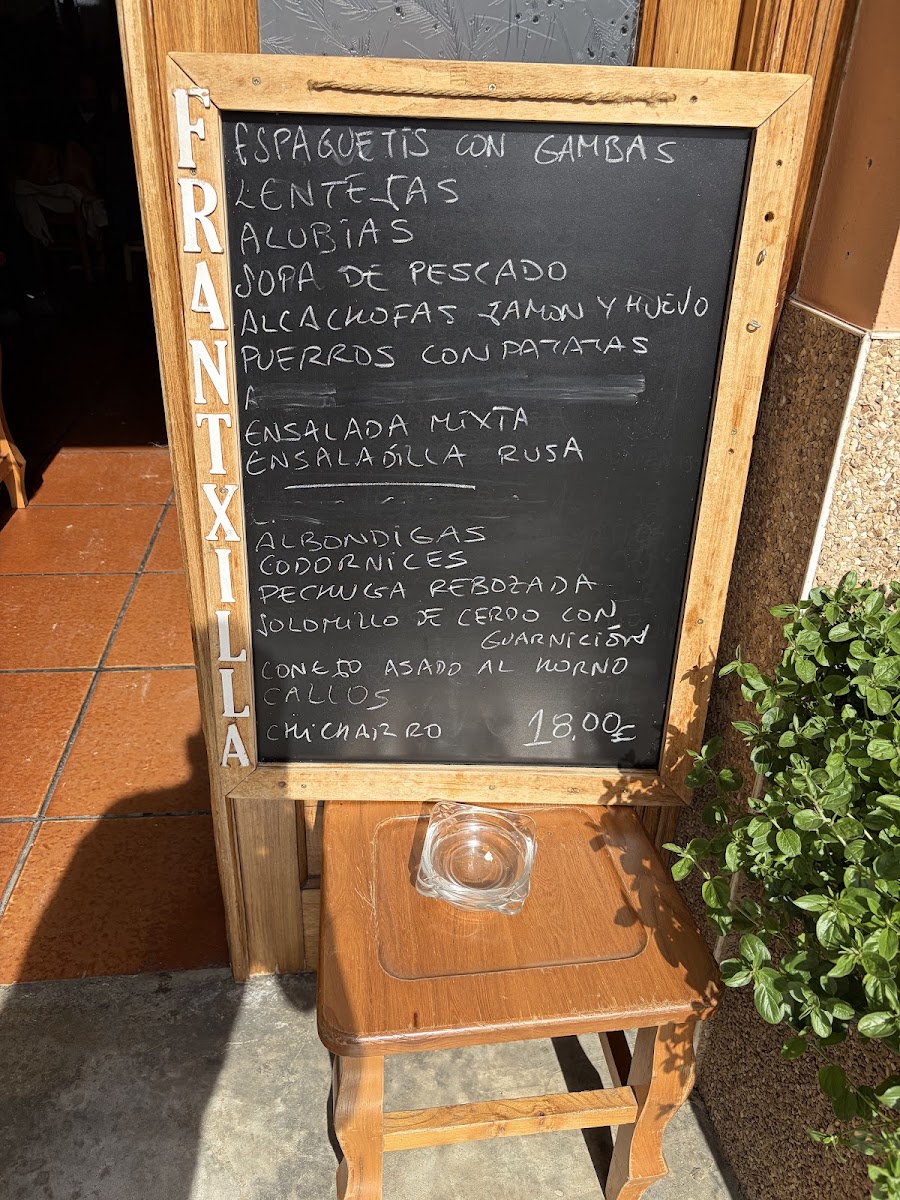 FRANTXILLA
ESPAGUETIS CON GAMBAS
LENTEJAS
ALUBIAS
SOPA DE PESCADO
ALCACHOFAS JAMON Y HUEVO
PUERROS CON PATATAS
ENSALADA MIXTA
ENSALADILLA RUSA
ALBONDIGAS
CODORNICES
PECHUGA REBOZADA
SOLOMILLO DE CERDO CON
GUARNICIÓN
CONEJO ASADO AL HORNO
CALLOS
CHICHARRO 18,00€